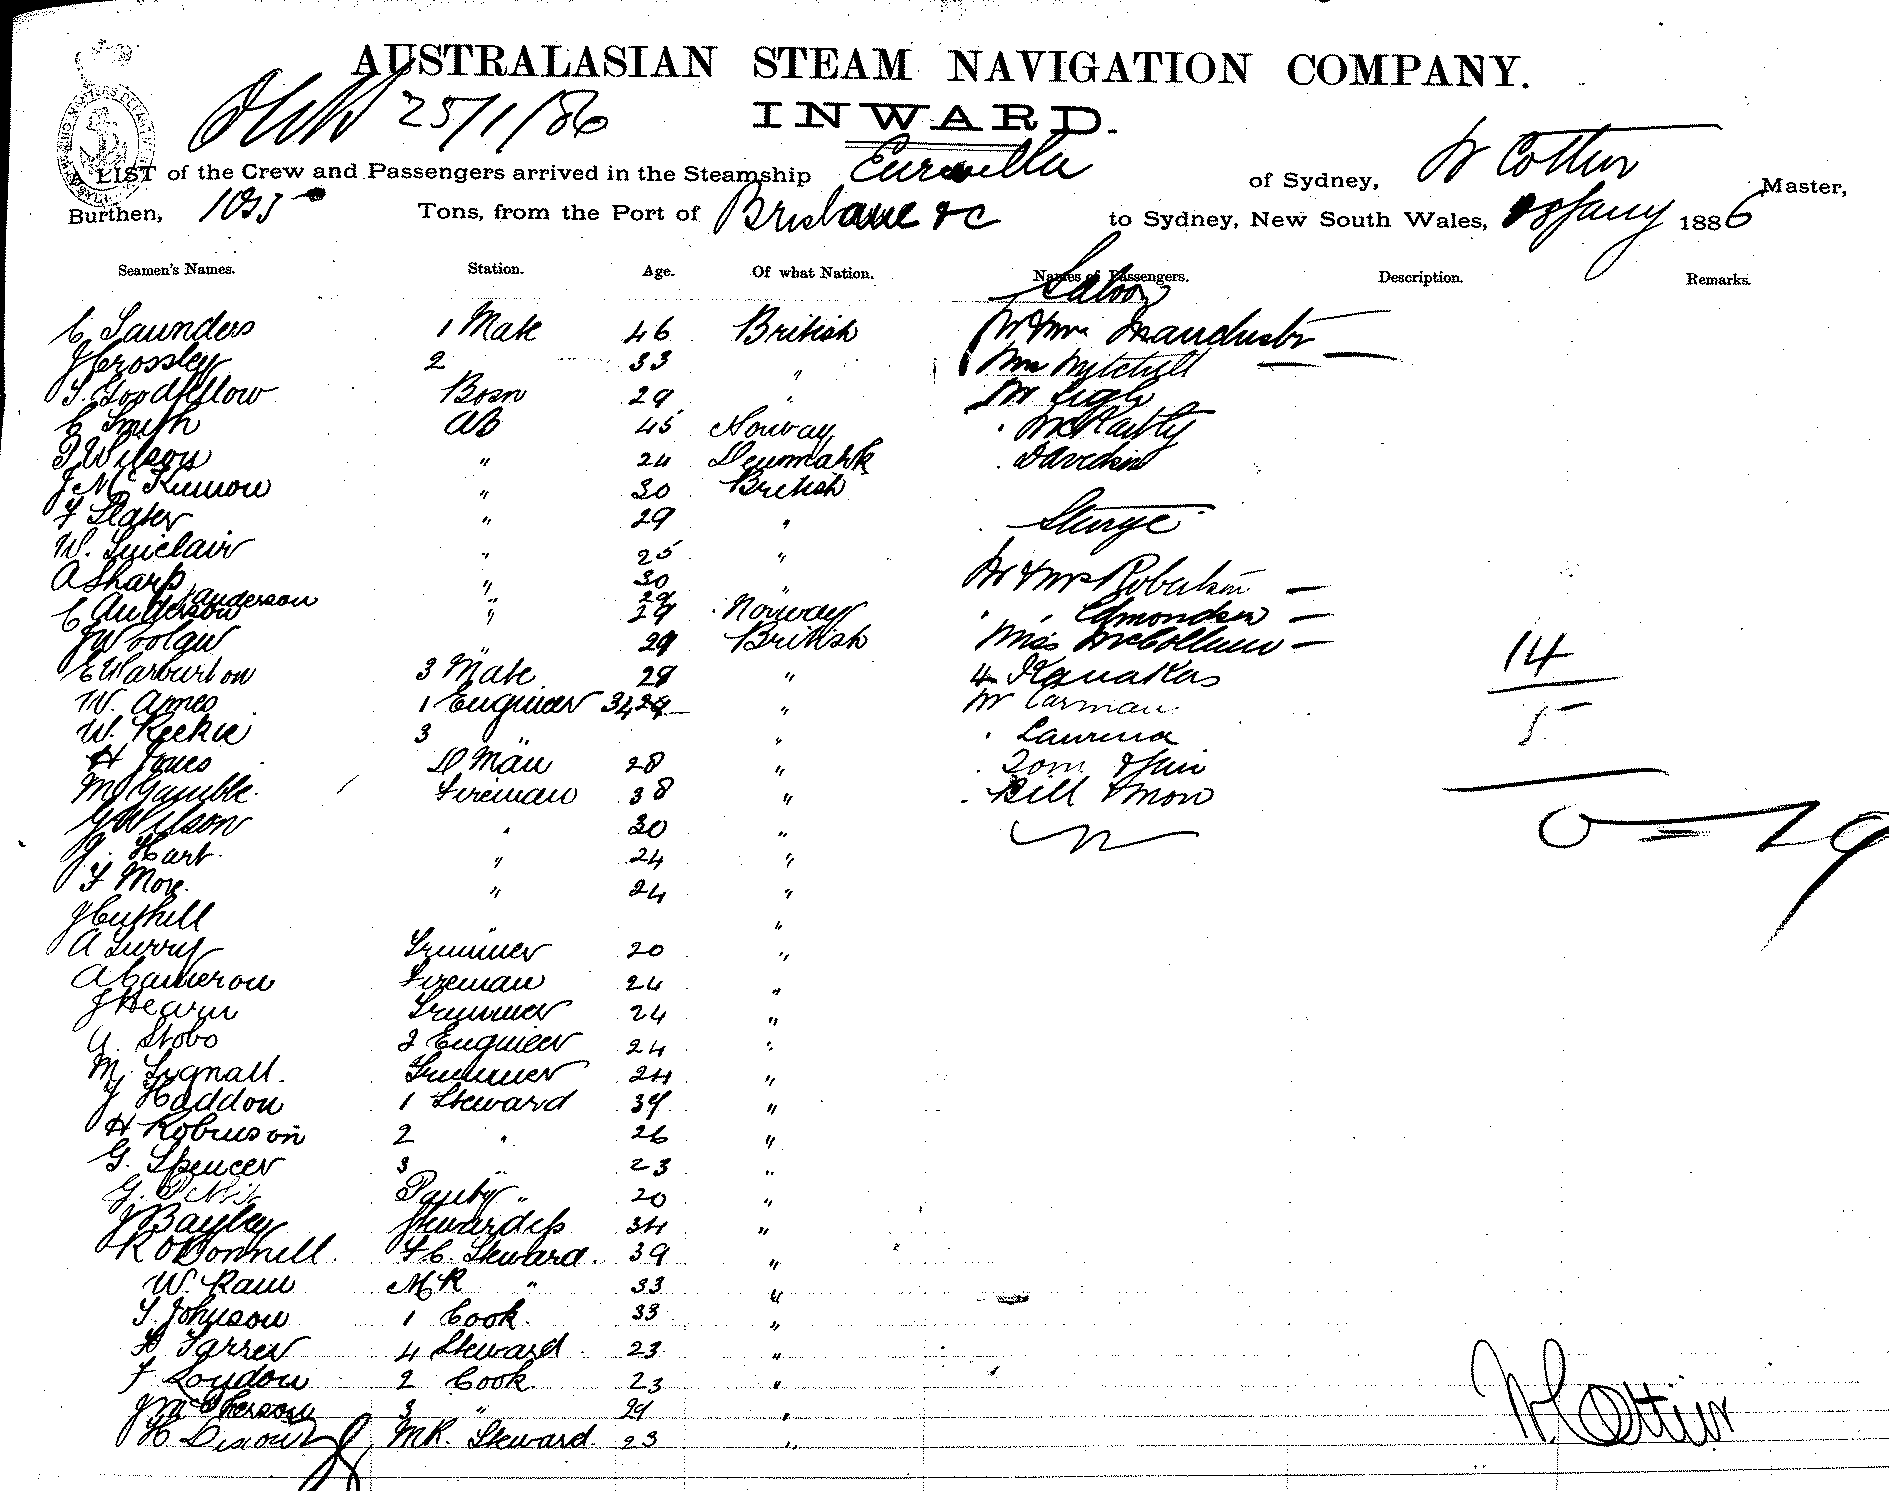 AUSTRALASIAN STEAM NAVIGATION COMPANY.
25/1/86
INWARD.
A LIST of the Crew and Passengers arrived in the Steamship Eurimbla of Sydney, W Cottier Master,
Burthen, 1055 Tons, from the Port of Brisbane &c to Sydney, New South Wales, Jany 1886
Seamen's Names. Station. Age. Of what Nation. Names of Passengers. Description. Remarks.
Saloon
C Saunders 1 Mate 46 British Mr & Mrs Manchester —
J Crossley 2 33 " Mrs Mitchell
T. Goodfellow Bosn 29 " Mr Leigh
C Smith AB 45 Norway " McCarthy
P Wilson " 24 Denmark " Davidson
J McKinnon " 30 British
F Slater " 29 " Sturge
W. Sinclair " 25 "
A Sharp " 30 " Mr & Mrs Robertson —
C Anderson Anderson " 29 Norway " " Edmondson —
J Woolaw " 29 British Miss McCollum —
E Warburton 3 Mate 28 " 4 Kanakas
W. Ames 1 Engineer 34 " Mr Carman
W. Keekie 3 " " " Laurina
H Jones D Man 28 " " Tom & Jim
M Gamble Fireman 38 " " Bill & Mon
14
5
0 = 19
G Wilson " 30 "
J. Hart " 24 "
F More " 24 "
J Cuthill " "
A Surry Trimmer 20 "
A Cameron Fireman 24 "
J Hearn Trimmer 24 "
A. Stobo 2 Engineer 24 "
M. Lignall Trimmer 24 "
J Haddon 1 Steward 34 "
H Robinson 2 " 26 "
G. Spencer 3 " 23 "
G. Pantry " 20 "
J Bayley Stewardess 34 "
R O'Donnell F C. Steward 39 "
W. Rain MR " 33 "
T. Johnson 1 Cook 33 "
H Farrer 4 Steward 23 "
F Loudon 2 Cook 23 "
J McPherson 3 " 29 "
H Dixon MR. Steward 23 "
W. Cottier